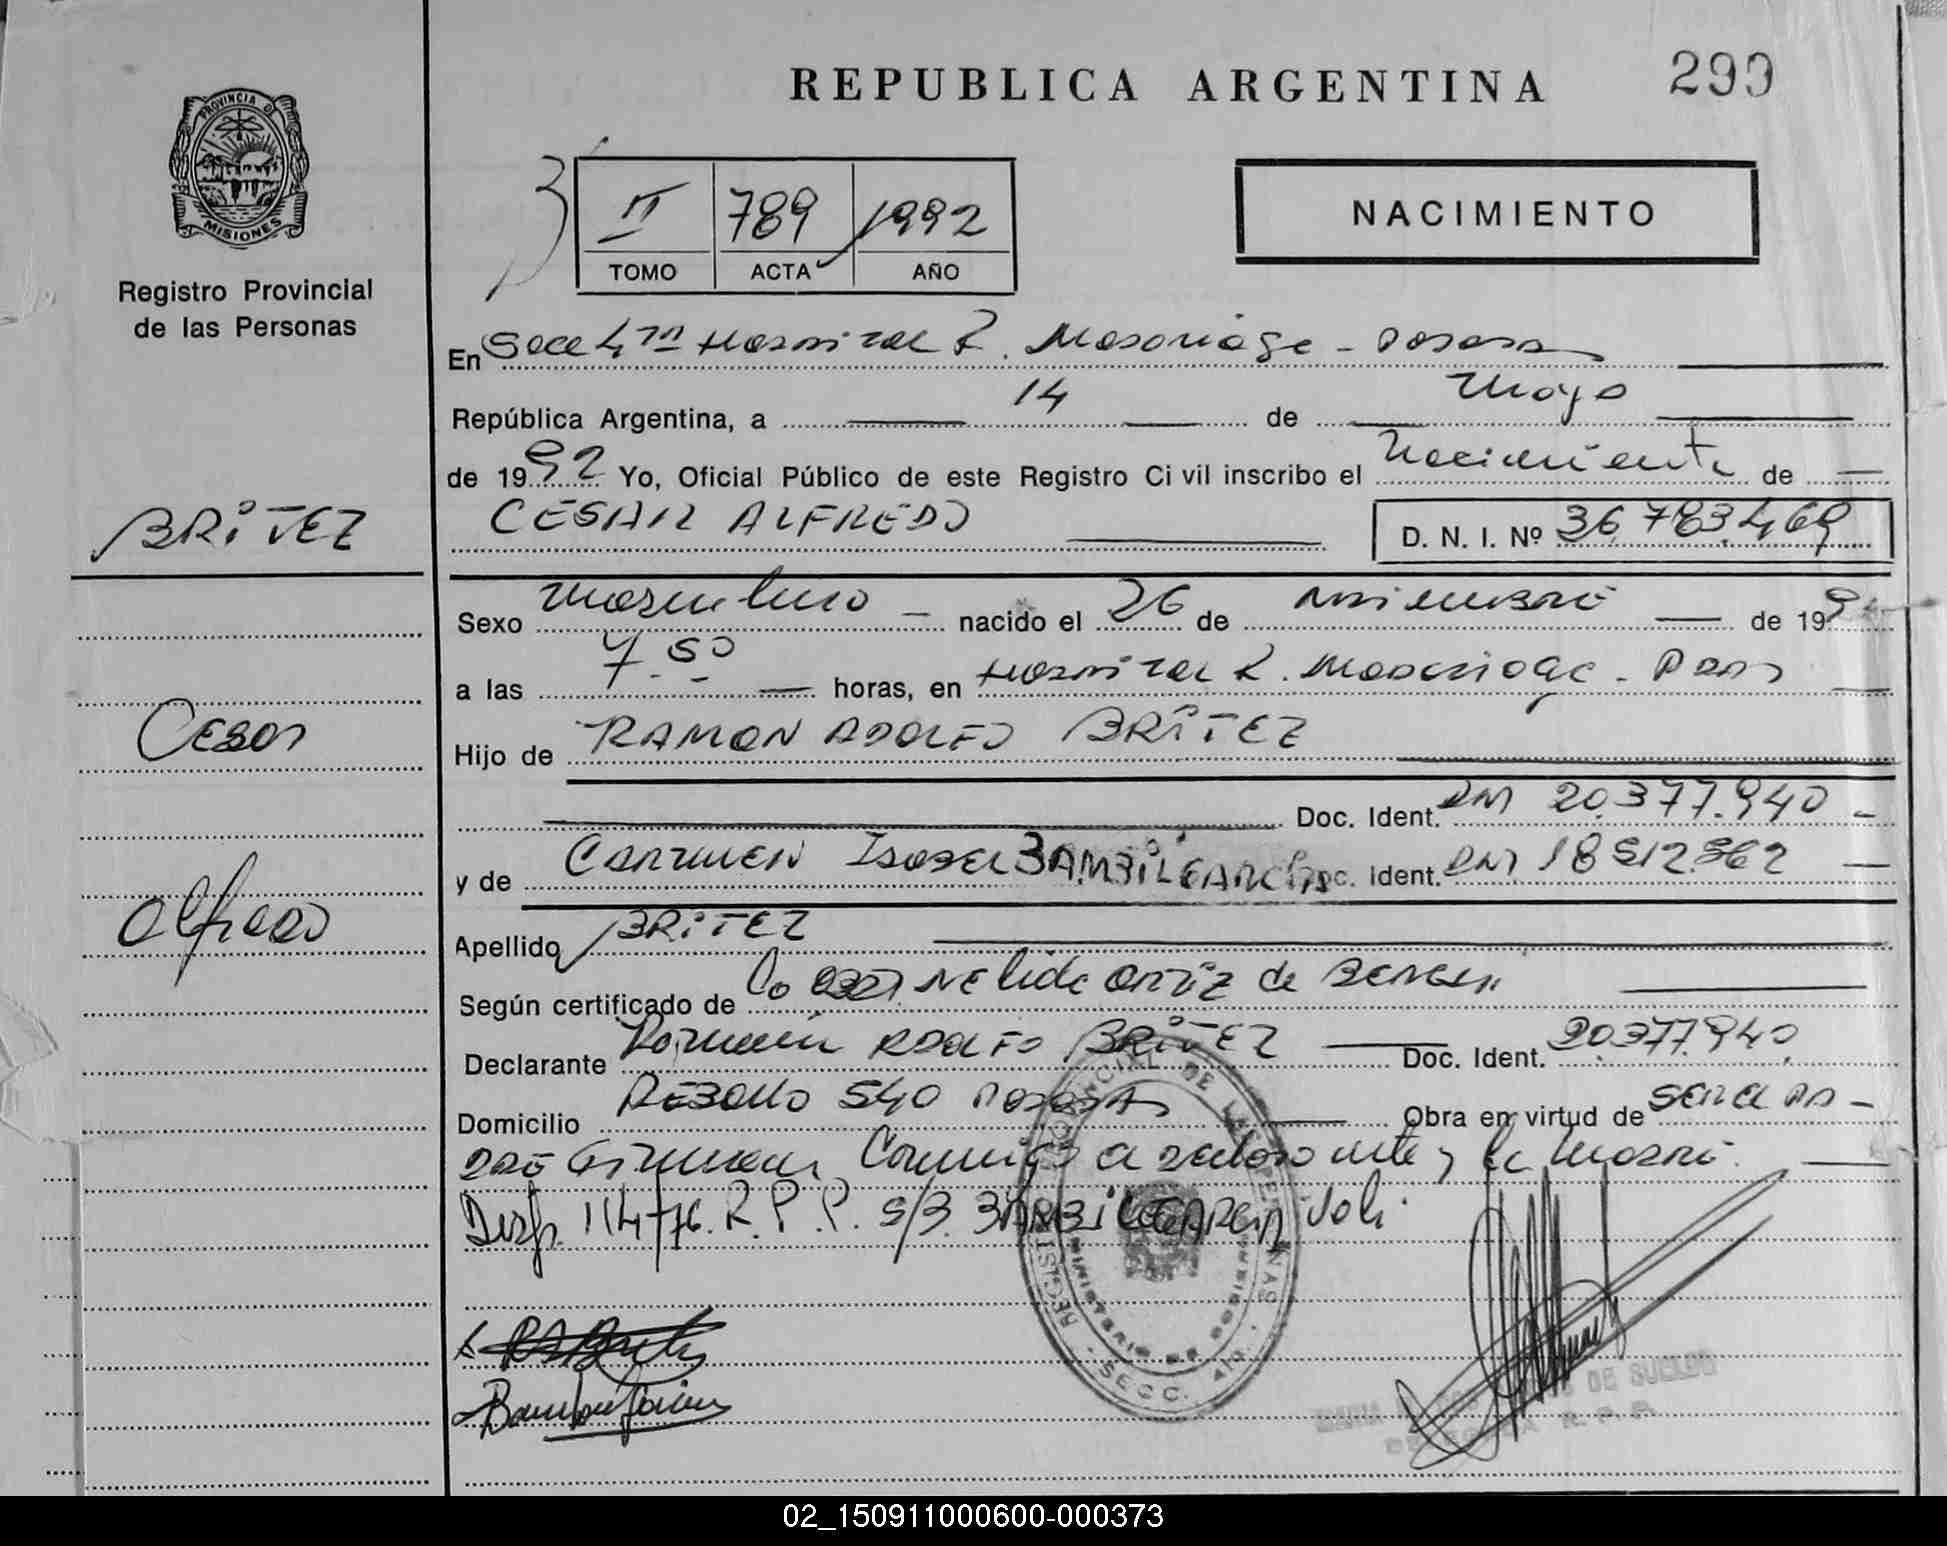 REPUBLICA ARGENTINA
299
PROVINCIA DE
MISIONES
Registro Provincial
de las Personas
II 789 1992
TOMO ACTA AÑO
NACIMIENTO
En Secc 4ta Hospital R. Madariaga - Posadas
República Argentina, a 14 de Mayo
de 1992 Yo, Oficial Público de este Registro Civil inscribo el Nacimiento de
CESAR ALFREDO D. N. I. Nº 36.783.469
BRITEZ
Sexo Masculino nacido el 26 de de 199
a las 7.50 horas, en Hospital R. Madariaga - Pdas
Cesar
Hijo de RAMON ADOLFO BRITEZ
Doc. Ident. DNI 20.377.940 -
y de CARMEN ISABEL BAMBILGARCIA Doc. Ident. DNI 18.512.362
Alfredo
Apellido BRITEZ
Según certificado de la Nelida Ortiz de
Declarante Ramón ADOLFO BRITEZ Doc. Ident. 20.377.940
Domicilio REBOLLO 540 POSADAS Obra en virtud de ser el pa-
dre Firman Conmigo el declarante y la madre.
114/76. R.P.P. S/B. BAMBILGARCIA Vale.
REGISTRO PROVINCIAL DE LAS PERSONAS
MINISTERIO DE GOBIERNO
SECC. 4ta.
DE SUELDO